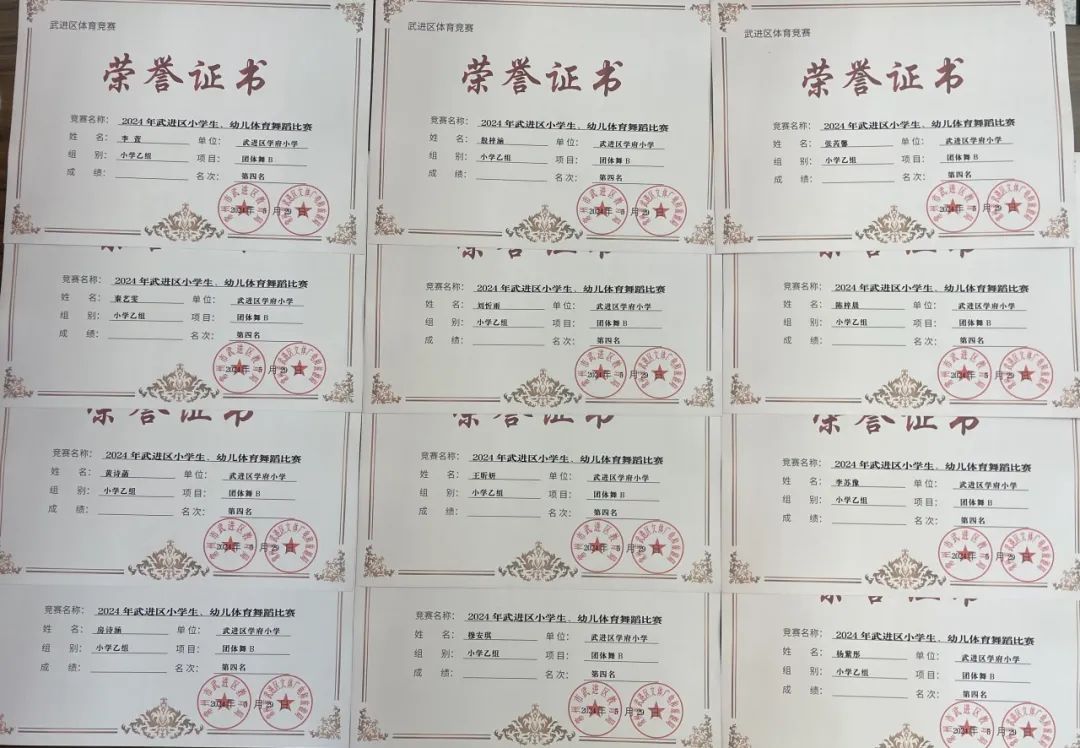 武进区体育竞赛
荣誉证书
竞赛名称: 2024 年武进区小学生、幼儿体育舞蹈比赛
姓 名: 李萱 单位: 武进区学府小学
组 别: 小学乙组 项目: 团体舞 B
成 绩: 名次: 第四名
2024年 5 月 29 日
武进区体育竞赛
荣誉证书
竞赛名称: 2024 年武进区小学生、幼儿体育舞蹈比赛
姓 名: 殷梓涵 单位: 武进区学府小学
组 别: 小学乙组 项目: 团体舞 B
成 绩: 名次: 第四名
2024年 5 月 29 日
武进区体育竞赛
荣誉证书
竞赛名称: 2024 年武进区小学生、幼儿体育舞蹈比赛
姓 名: 张芮馨 单位: 武进区学府小学
组 别: 小学乙组 项目: 团体舞 B
成 绩: 名次: 第四名
2024年 5 月 29 日
竞赛名称: 2024 年武进区小学生、幼儿体育舞蹈比赛
姓 名: 秦艺雯 单位: 武进区学府小学
组 别: 小学乙组 项目: 团体舞 B
成 绩: 名次: 第四名
2024年 5 月 29 日
竞赛名称: 2024 年武进区小学生、幼儿体育舞蹈比赛
姓 名: 刘忻雨 单位: 武进区学府小学
组 别: 小学乙组 项目: 团体舞 B
成 绩: 名次: 第四名
2024年 5 月 29 日
竞赛名称: 2024 年武进区小学生、幼儿体育舞蹈比赛
姓 名: 陈梓晨 单位: 武进区学府小学
组 别: 小学乙组 项目: 团体舞 B
成 绩: 名次: 第四名
2024年 5 月 29 日
荣誉证书
竞赛名称: 2024 年武进区小学生、幼儿体育舞蹈比赛
姓 名: 黄诗菡 单位: 武进区学府小学
组 别: 小学乙组 项目: 团体舞 B
成 绩: 名次: 第四名
2024年 5 月 29 日
荣誉证书
竞赛名称: 2024 年武进区小学生、幼儿体育舞蹈比赛
姓 名: 王昕妍 单位: 武进区学府小学
组 别: 小学乙组 项目: 团体舞 B
成 绩: 名次: 第四名
2024年 5 月 29 日
荣誉证书
竞赛名称: 2024 年武进区小学生、幼儿体育舞蹈比赛
姓 名: 李苏豫 单位: 武进区学府小学
组 别: 小学乙组 项目: 团体舞 B
成 绩: 名次: 第四名
2024年 5 月 29 日
竞赛名称: 2024 年武进区小学生、幼儿体育舞蹈比赛
姓 名: 房诗涵 单位: 武进区学府小学
组 别: 小学乙组 项目: 团体舞 B
成 绩: 名次: 第四名
2024年 5 月 29 日
竞赛名称: 2024 年武进区小学生、幼儿体育舞蹈比赛
姓 名: 徐安琪 单位: 武进区学府小学
组 别: 小学乙组 项目: 团体舞 B
成 绩: 名次: 第四名
2024年 5 月 29 日
竞赛名称: 2024 年武进区小学生、幼儿体育舞蹈比赛
姓 名: 杨紫彤 单位: 武进区学府小学
组 别: 小学乙组 项目: 团体舞 B
成 绩: 名次: 第四名
2024年 5 月 29 日